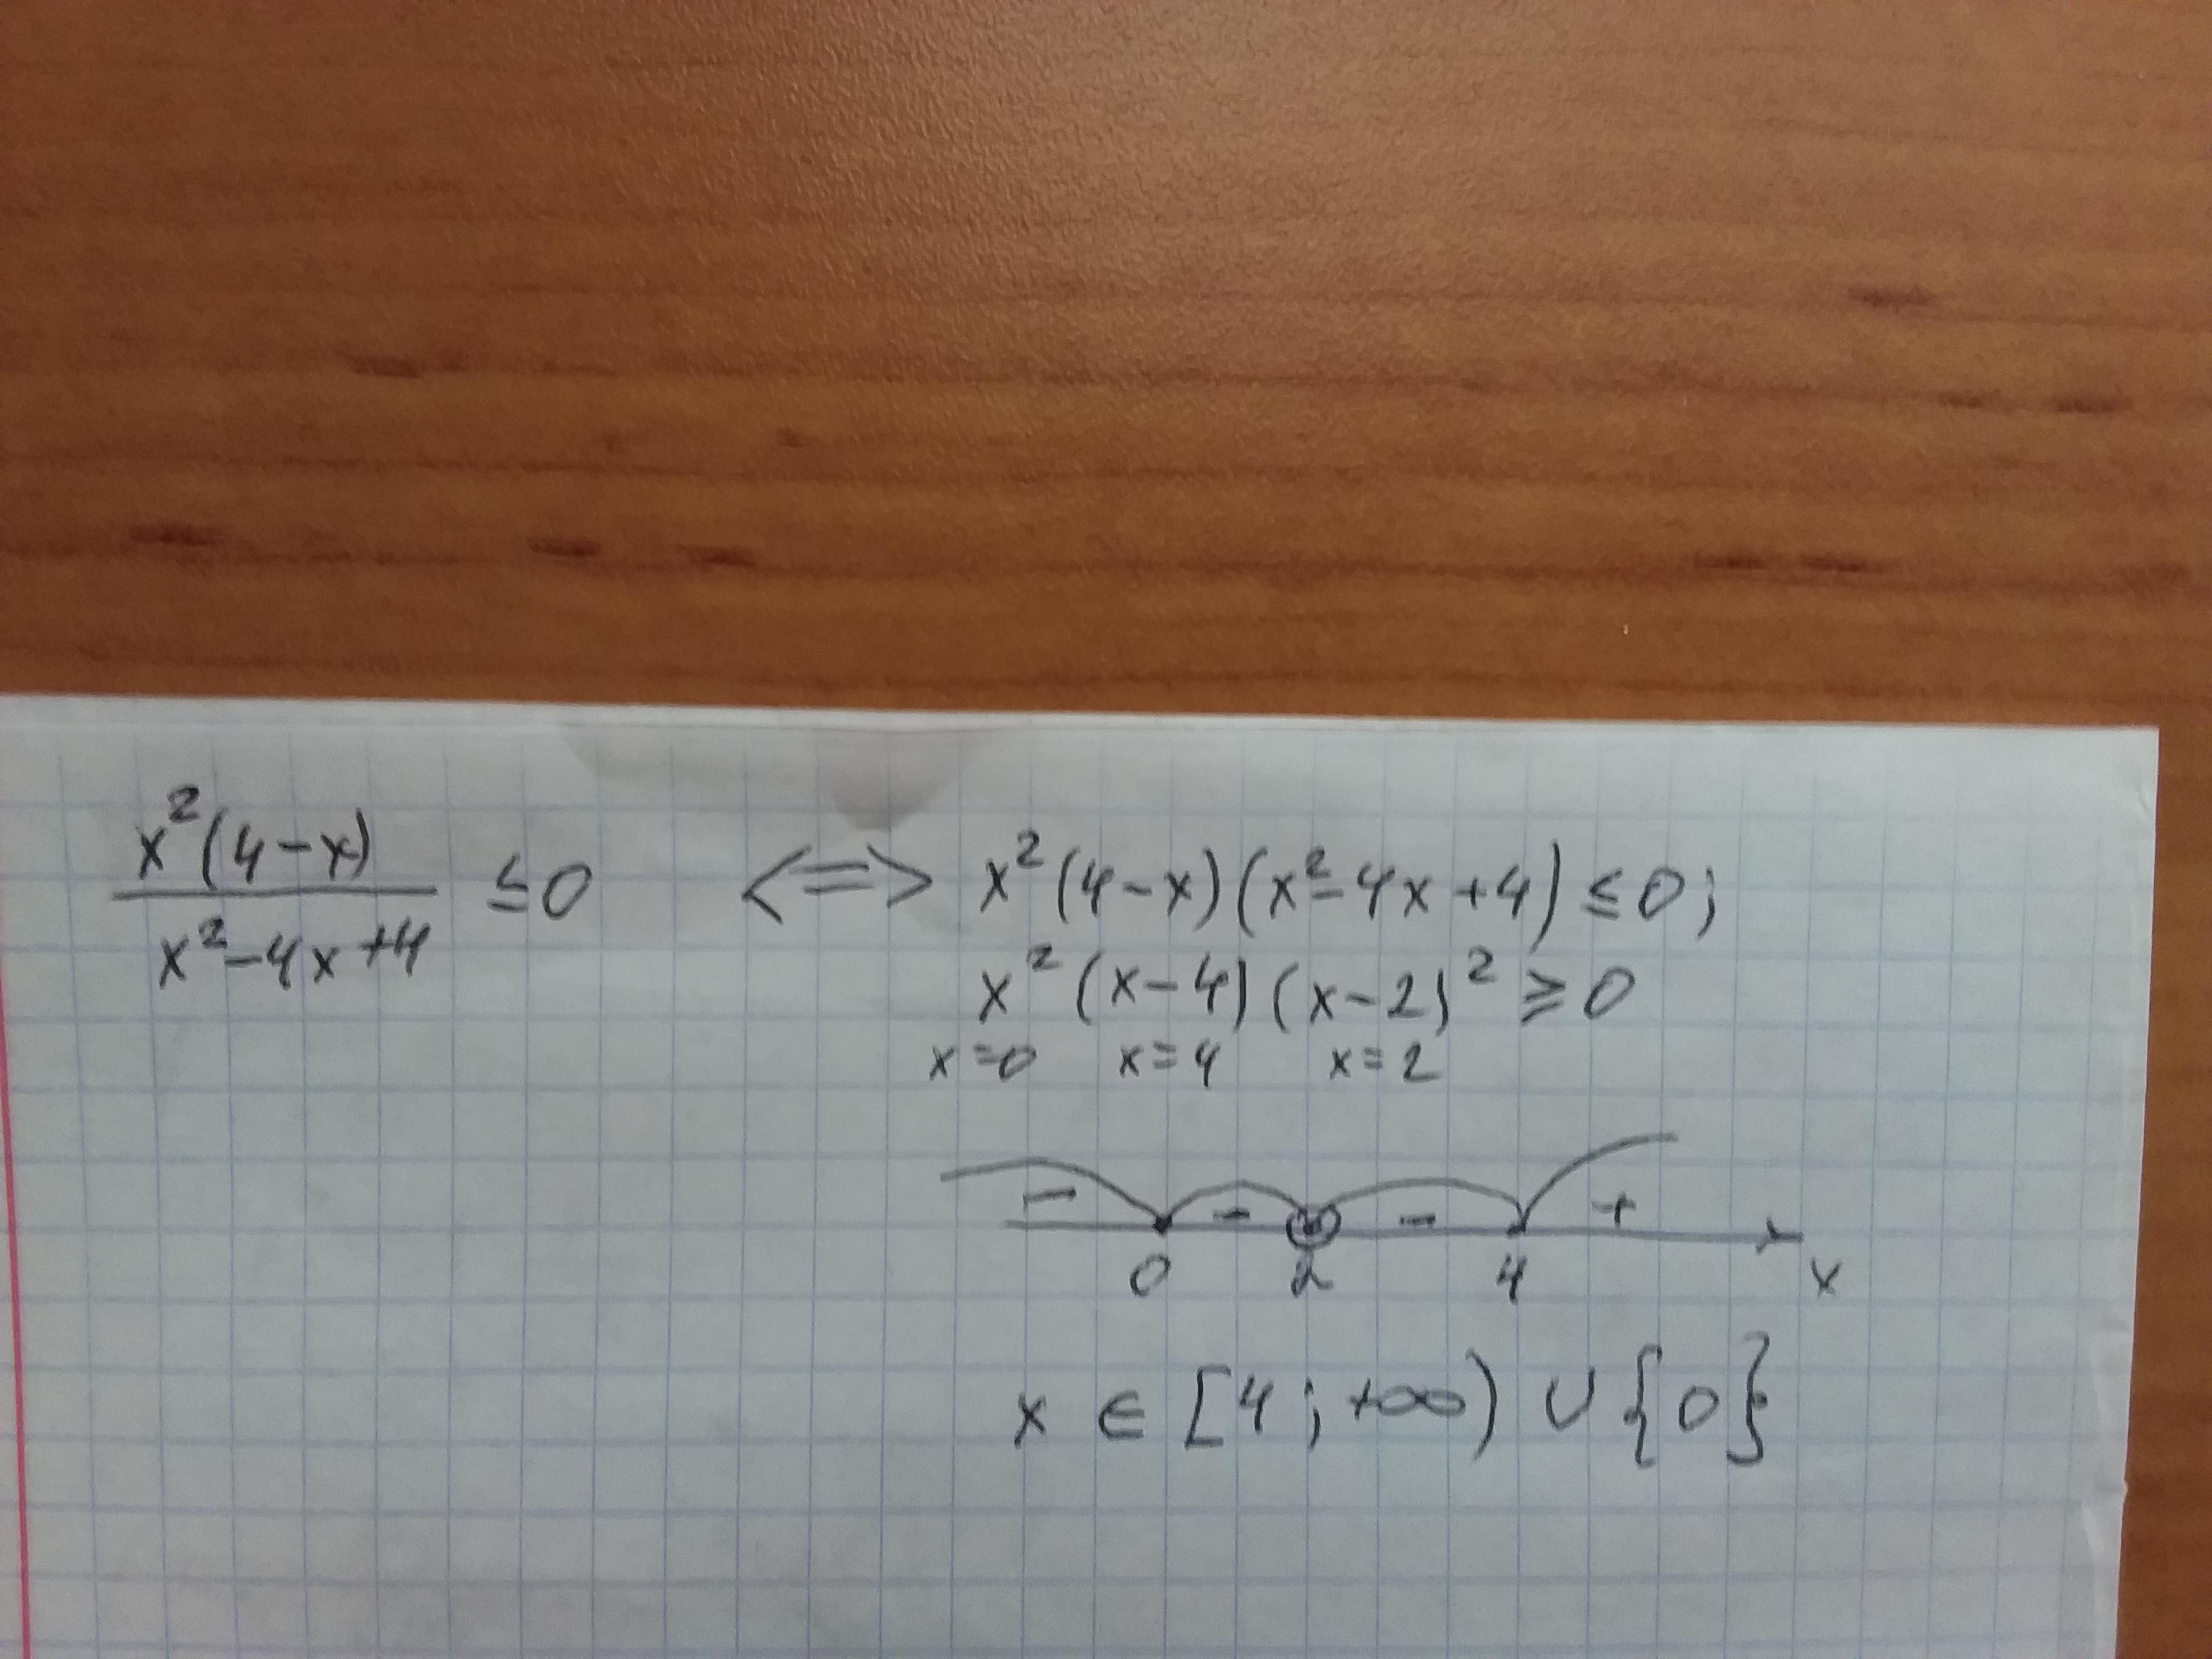 x²(4-x)/(x²-4x+4) ≤0 <=> x²(4-x)(x²-4x+4)≤0;
x²(x-4)(x-2)²≥0
x=0 x=4 x=2
- - - +
0 2 4 x
x ∈ [4;+∞) ∪ {0}